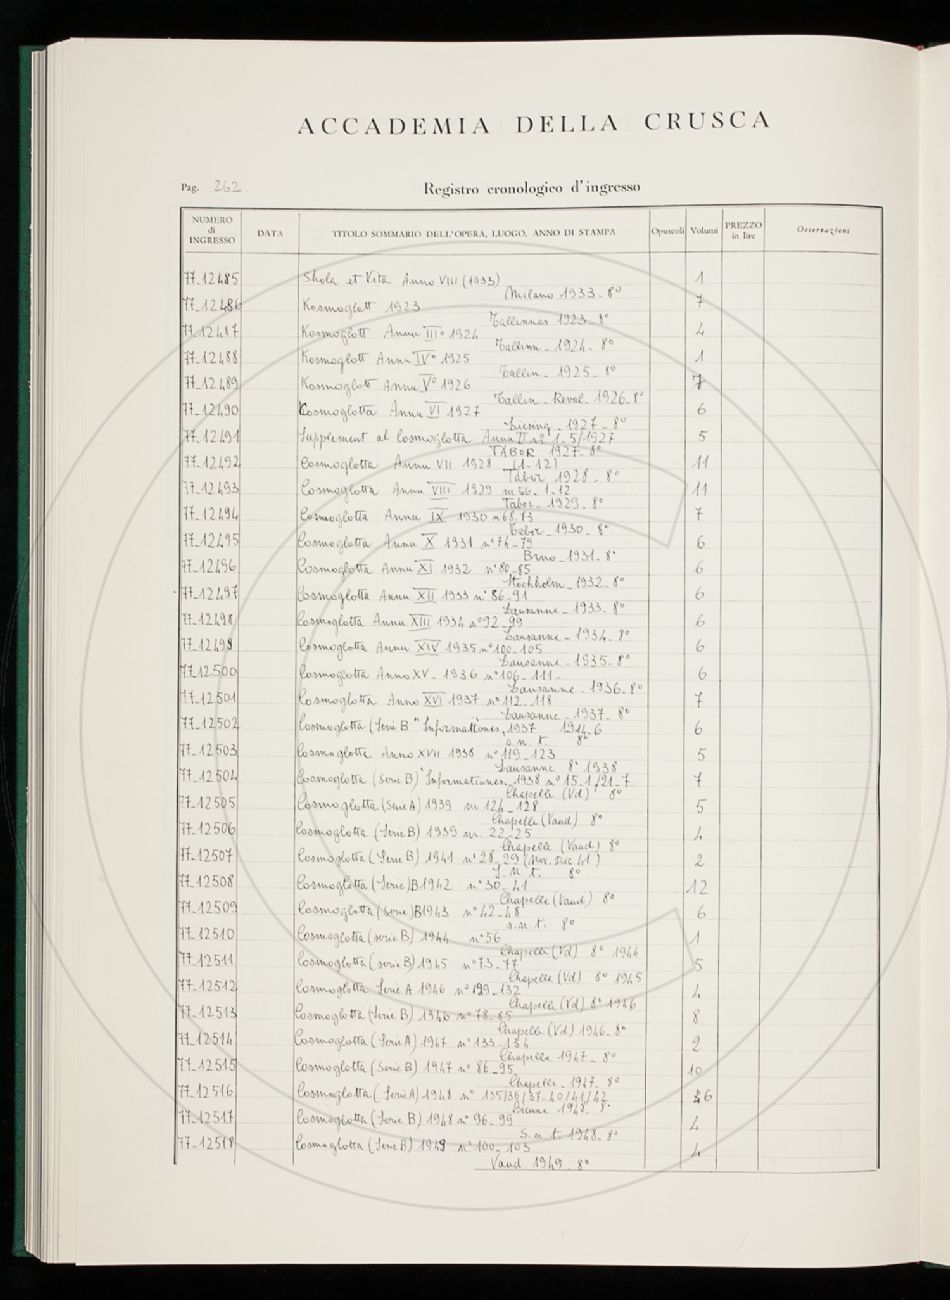 ACCADEMIA DELLA CRUSCA
Pag. 262
Registro cronologico d'ingresso
NUMERO di INGRESSO DATA TITOLO SOMMARIO DELL'OPERA, LUOGO, ANNO DI STAMPA Opuscoli Volumi PREZZO in lire Osservazioni
77-12485 Skola et Vita Anno VIII (1933) 1
Milano 1933-8°
77-12486 Kosmoglott 1923 7
Tallinnas 1923-8°
77-12487 Kosmoglott Annu III° 1924 4
Tallinn - 1924 - 8°
77-12488 Kosmoglott Annu IV° 1925 1
Tallin - 1925 - 8°
77-12489 Kosmoglott Annu V° 1926 7
Tallin - Reval - 1926-8°
77-12490 Cosmoglotta Annu VI 1927 6
Liesing - 1927 - 8°
77-12491 Supplement al Cosmoglotta Annu II n° 1-5/1927 5
TABOR 1927-8°
77-12492 Cosmoglotta Annu VII 1928 (1-12) 11
Tabor 1928 - 8°
77-12493 Cosmoglotta Annu VIII 1929 1-12 11
Tabor - 1929 - 8°
77-12494 Cosmoglotta Annu IX 1930 n 68-73 7
Tabor - 1930 - 8°
77-12495 Cosmoglotta Annu X 1931 n° 74-79 6
Brno - 1931 - 8°
77-12496 Cosmoglotta Annu XI 1932 n° 80-85 6
Stockholm - 1932 - 8°
77-12497 Cosmoglotta Annu XII 1933 n° 86-91 6
Lausanne - 1933 - 8°
77-12498 Cosmoglotta Annu XIII 1934 n° 92-99 6
Lausanne - 1934 - 8°
77-12499 Cosmoglotta Annu XIV 1935 n° 100-105 6
Lausanne - 1935 - 8°
77-12500 Cosmoglotta Anno XV - 1936 n° 106-111- 6
Lausanne - 1936 - 8°
77-12501 Cosmoglotta Anno XVI 1937 n° 112-118 7
Lausanne - 1937 - 8°
77-12502 Cosmoglotta (Serie B "Informationes, 1937 6
s.n.t. 8°
77-12503 Cosmoglotta Anno XVII 1938 n° 119-123 5
Lausanne 8° 1938
77-12504 Cosmoglotta (Serie B) "Informationes, 1938 n° 15-1/21-7 7
Chapelle (Vd) 8°
77-12505 Cosmoglotta (Serie A) 1939 nr 124-128 5
Chapelle (Vaud) 8°
77-12506 Cosmoglotta (Serie B) 1939 nr. 22-25 4
Chapelle (Vaud) 8°
77-12507 Cosmoglotta (Serie B) 1941 n° 28-29 2
S.n.t. 8°
77-12508 Cosmoglotta (Serie) B 1942 n° 30-41 12
Chapelle (Vaud) 8°
77-12509 Cosmoglotta (Serie) B 1943 n° 42-48 6
s.n.t. 8°
77-12510 Cosmoglotta (serie B) 1944 n° 56 1
Chapelle (Vd) 8° 1944
77-12511 Cosmoglotta (serie B) 1945 n° 73-77 5
Chapelle (Vd) 8° 1945
77-12512 Cosmoglotta Serie A 1946 n° 129-132 4
Chapelle (Vd) 8° 1946
77-12513 Cosmoglotta (Serie B) 1946 n° 78-85 8
Chapelle (Vd) 1946-8°
77-12514 Cosmoglotta (Serie A) 1947 n° 133-134 2
Chapelle 1947 - 8°
77-12515 Cosmoglotta (Serie B) 1947 n° 86-95 10
Chapelle - 1947 - 8°
77-12516 Cosmoglotta (Serie A) 1948 n° 135/36/37-40/41/42 6
Bienne 1948 - 8°
77-12517 Cosmoglotta (Serie B) 1948 n° 96-99 4
S.n.t. 1948 - 8°
77-12518 Cosmoglotta (Serie B) 1949 n° 100-103 4
Vaud. 1949 - 8°